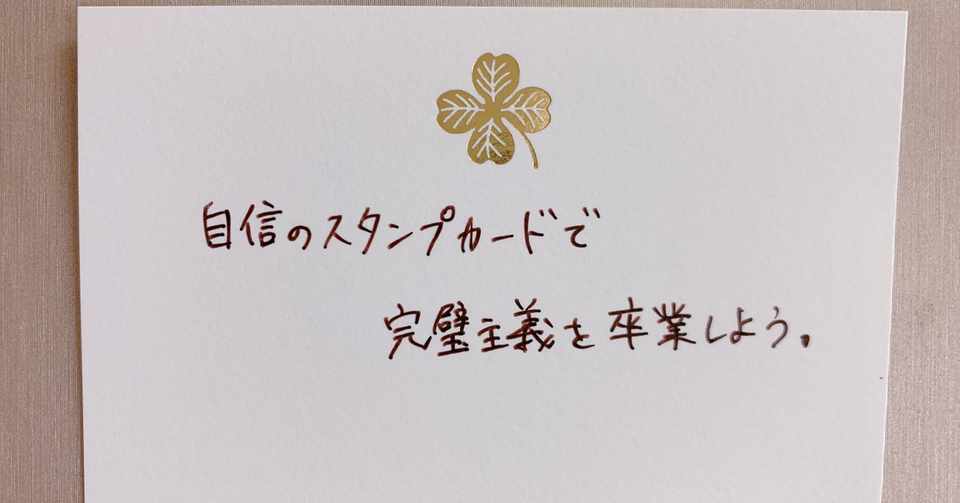 自信のスタンプカードで
完璧主義を卒業しよう。